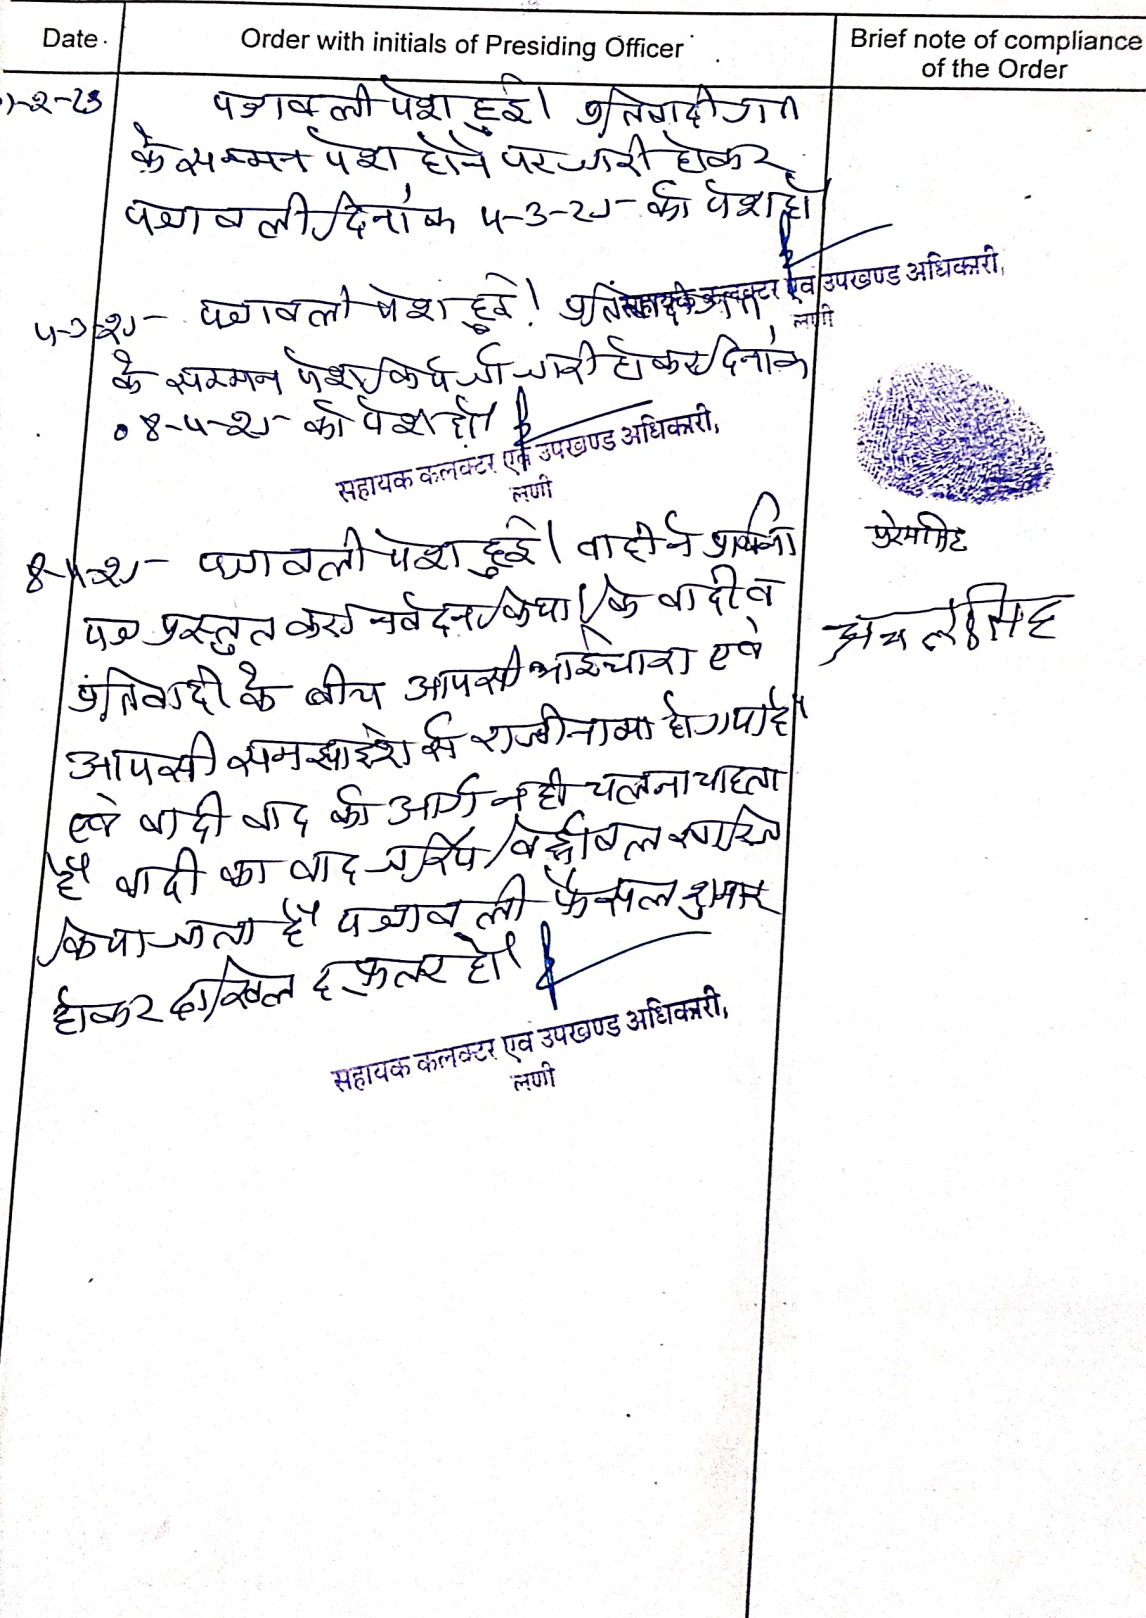 Date
Order with initials of Presiding Officer
Brief note of compliance
of the Order
पत्रावली पेश हुई। प्रतिवादीगण
के सम्मन पेश होने पर जारी होकर
पत्रावली दिनांक 4-3-25 को पेश हो
सहायक कलक्टर एवं उपखण्ड अधिकारी,
लूणी
4-3-25 पत्रावली पेश हुई!
के सम्मन पेश किये जो जारी होकर दिनांक
08-4-25 को पेश हो।
सहायक कलक्टर एवं उपखण्ड अधिकारी,
लूणी
8-4-25 पत्रावली पेश हुई। वादी ने प्रार्थना
पत्र प्रस्तुत कर निवेदन किया कि वादी व
प्रतिवादी के बीच आपसी भाईचारा एवं
आपसी समझाईश से राजीनामा हो गया है
एवं वादी वाद को आगे नही चलना चाहता
है वादी का वाद जरिये विड्रॉवल खारिज
किया जाता है पत्रावली फैसल शुमार
होकर दाखिल दफ्तर हो।
सहायक कलक्टर एवं उपखण्ड अधिकारी,
लूणी
प्रेमसिंह
अचलसिंह